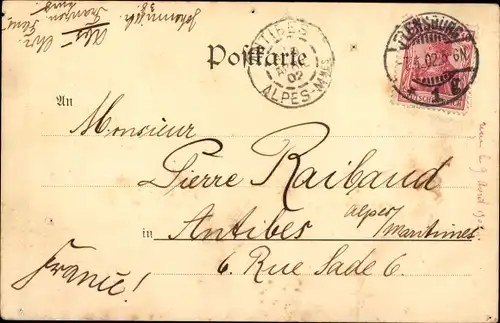 Postkarte
ANTIBES
02
ALPES-MMES
FLENSBURG
.4.02.
6 N
1 g
DEUTSCHES REICH
An
Monsieur
Pierre Raibaud
in Antibes Alpes
Maritimes
6. Rue Sade 6.
France!